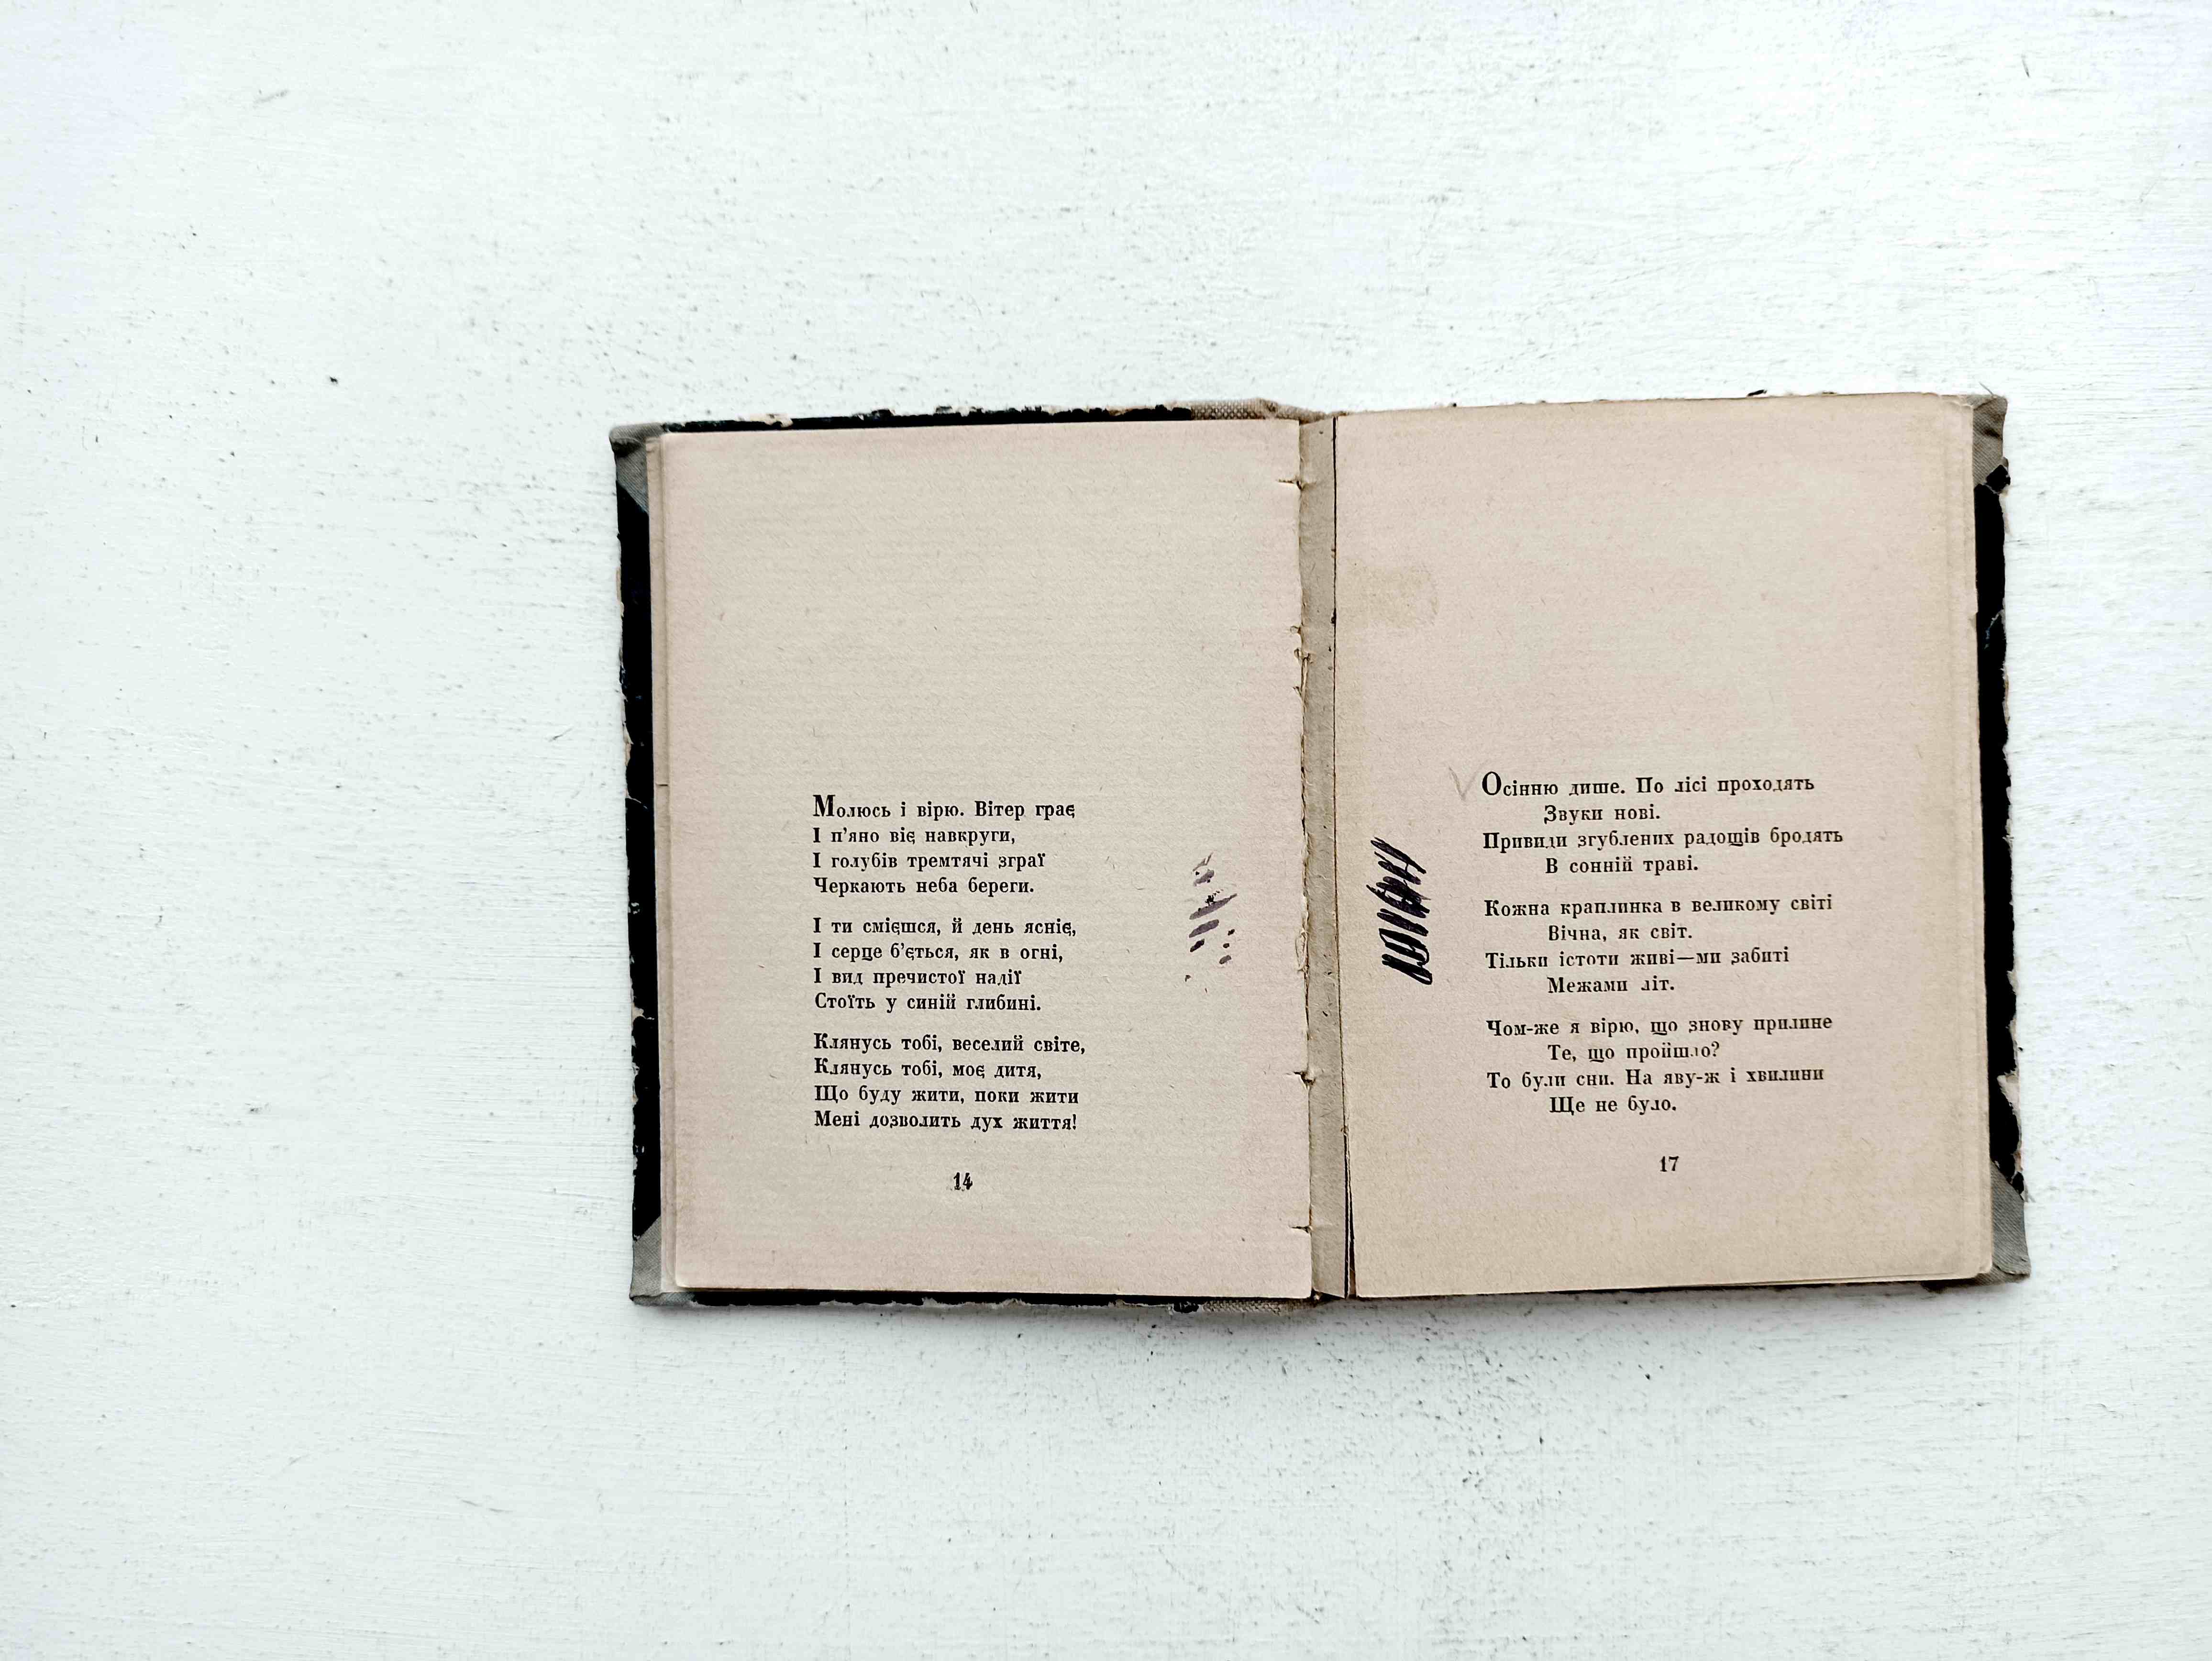 Молюсь і вірю. Вітер грає
І п'яно віє навкруги,
І голубів тремтячі зграї
Черкають неба береги.
І ти смієшся, й день ясніє,
І серце б'ється, як в огні,
І вид пречистої надії
Стоїть у синій глибині.
Клянусь тобі, веселий світе,
Клянусь тобі, моє дитя,
Що буду жити, поки жити
Мені дозволить дух життя!
14
Осінню дише. По лісі проходять
Звуки нові.
Привиди згублених радощів бродять
В сонній траві.
Кожна краплинка в великому світі
Вічна, як світ.
Тільки істоти живі—ми забиті
Межами літ.
Чом-же я вірю, що знову прилине
Те, що пройшло?
То були сни. На яву-ж і хвилини
Ще не було.
17